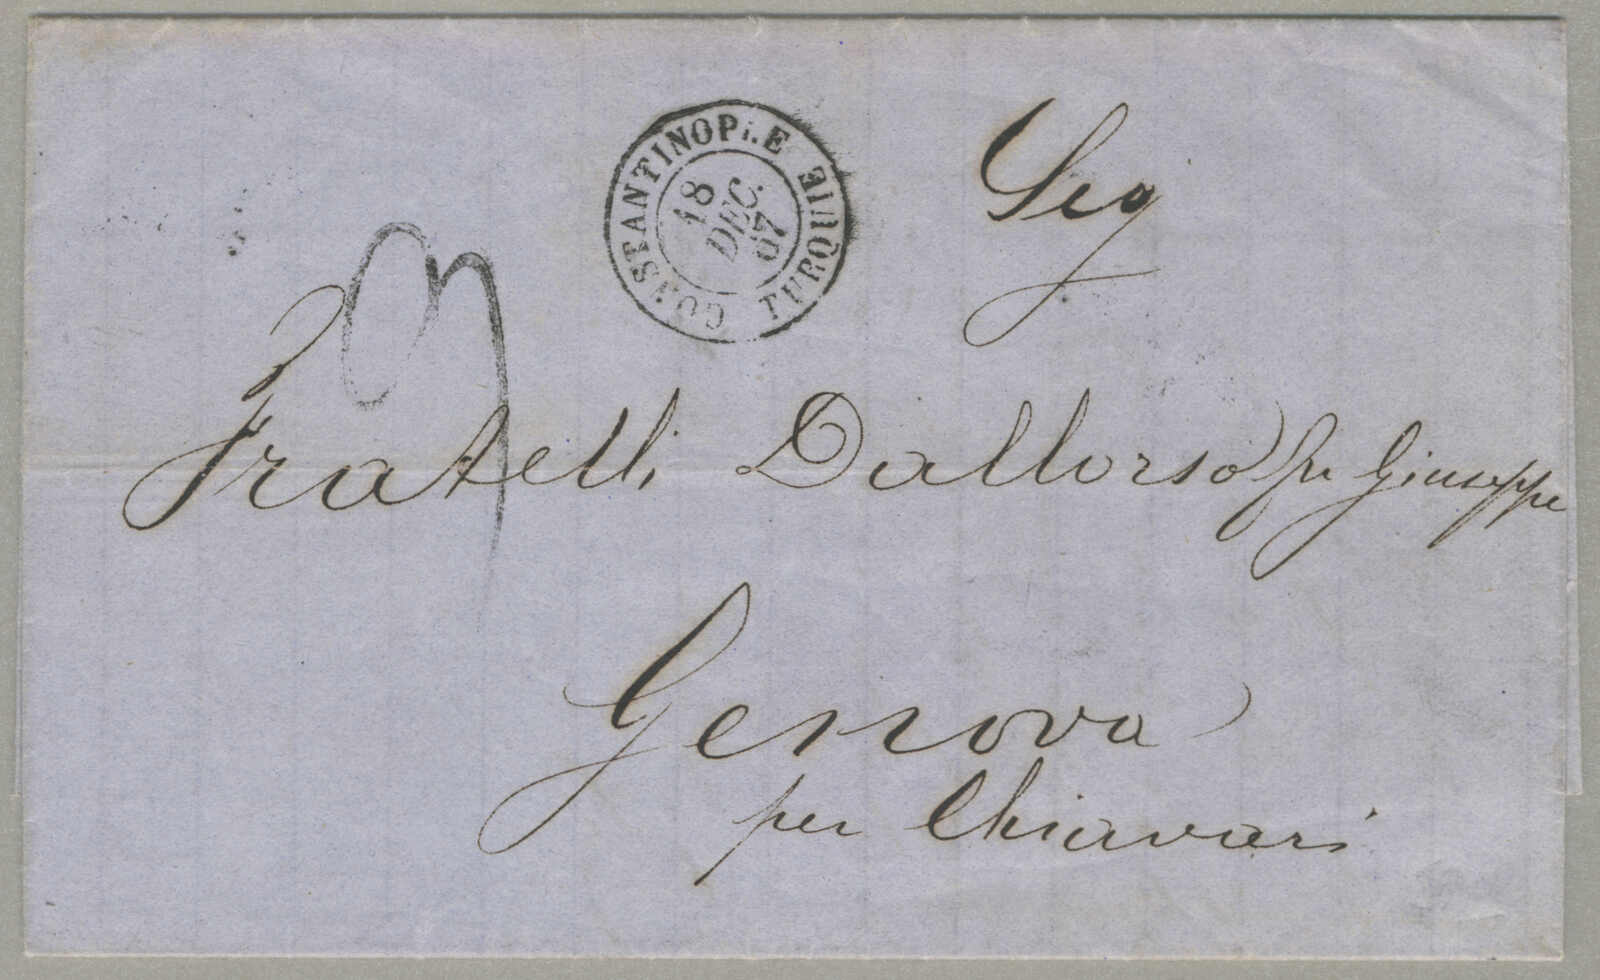 CONSTANTINOPLE TURQUIE
18
DEC.
67
Sig
Fratelli Dallorso fu Giuseppe
Genova
per Chiavari